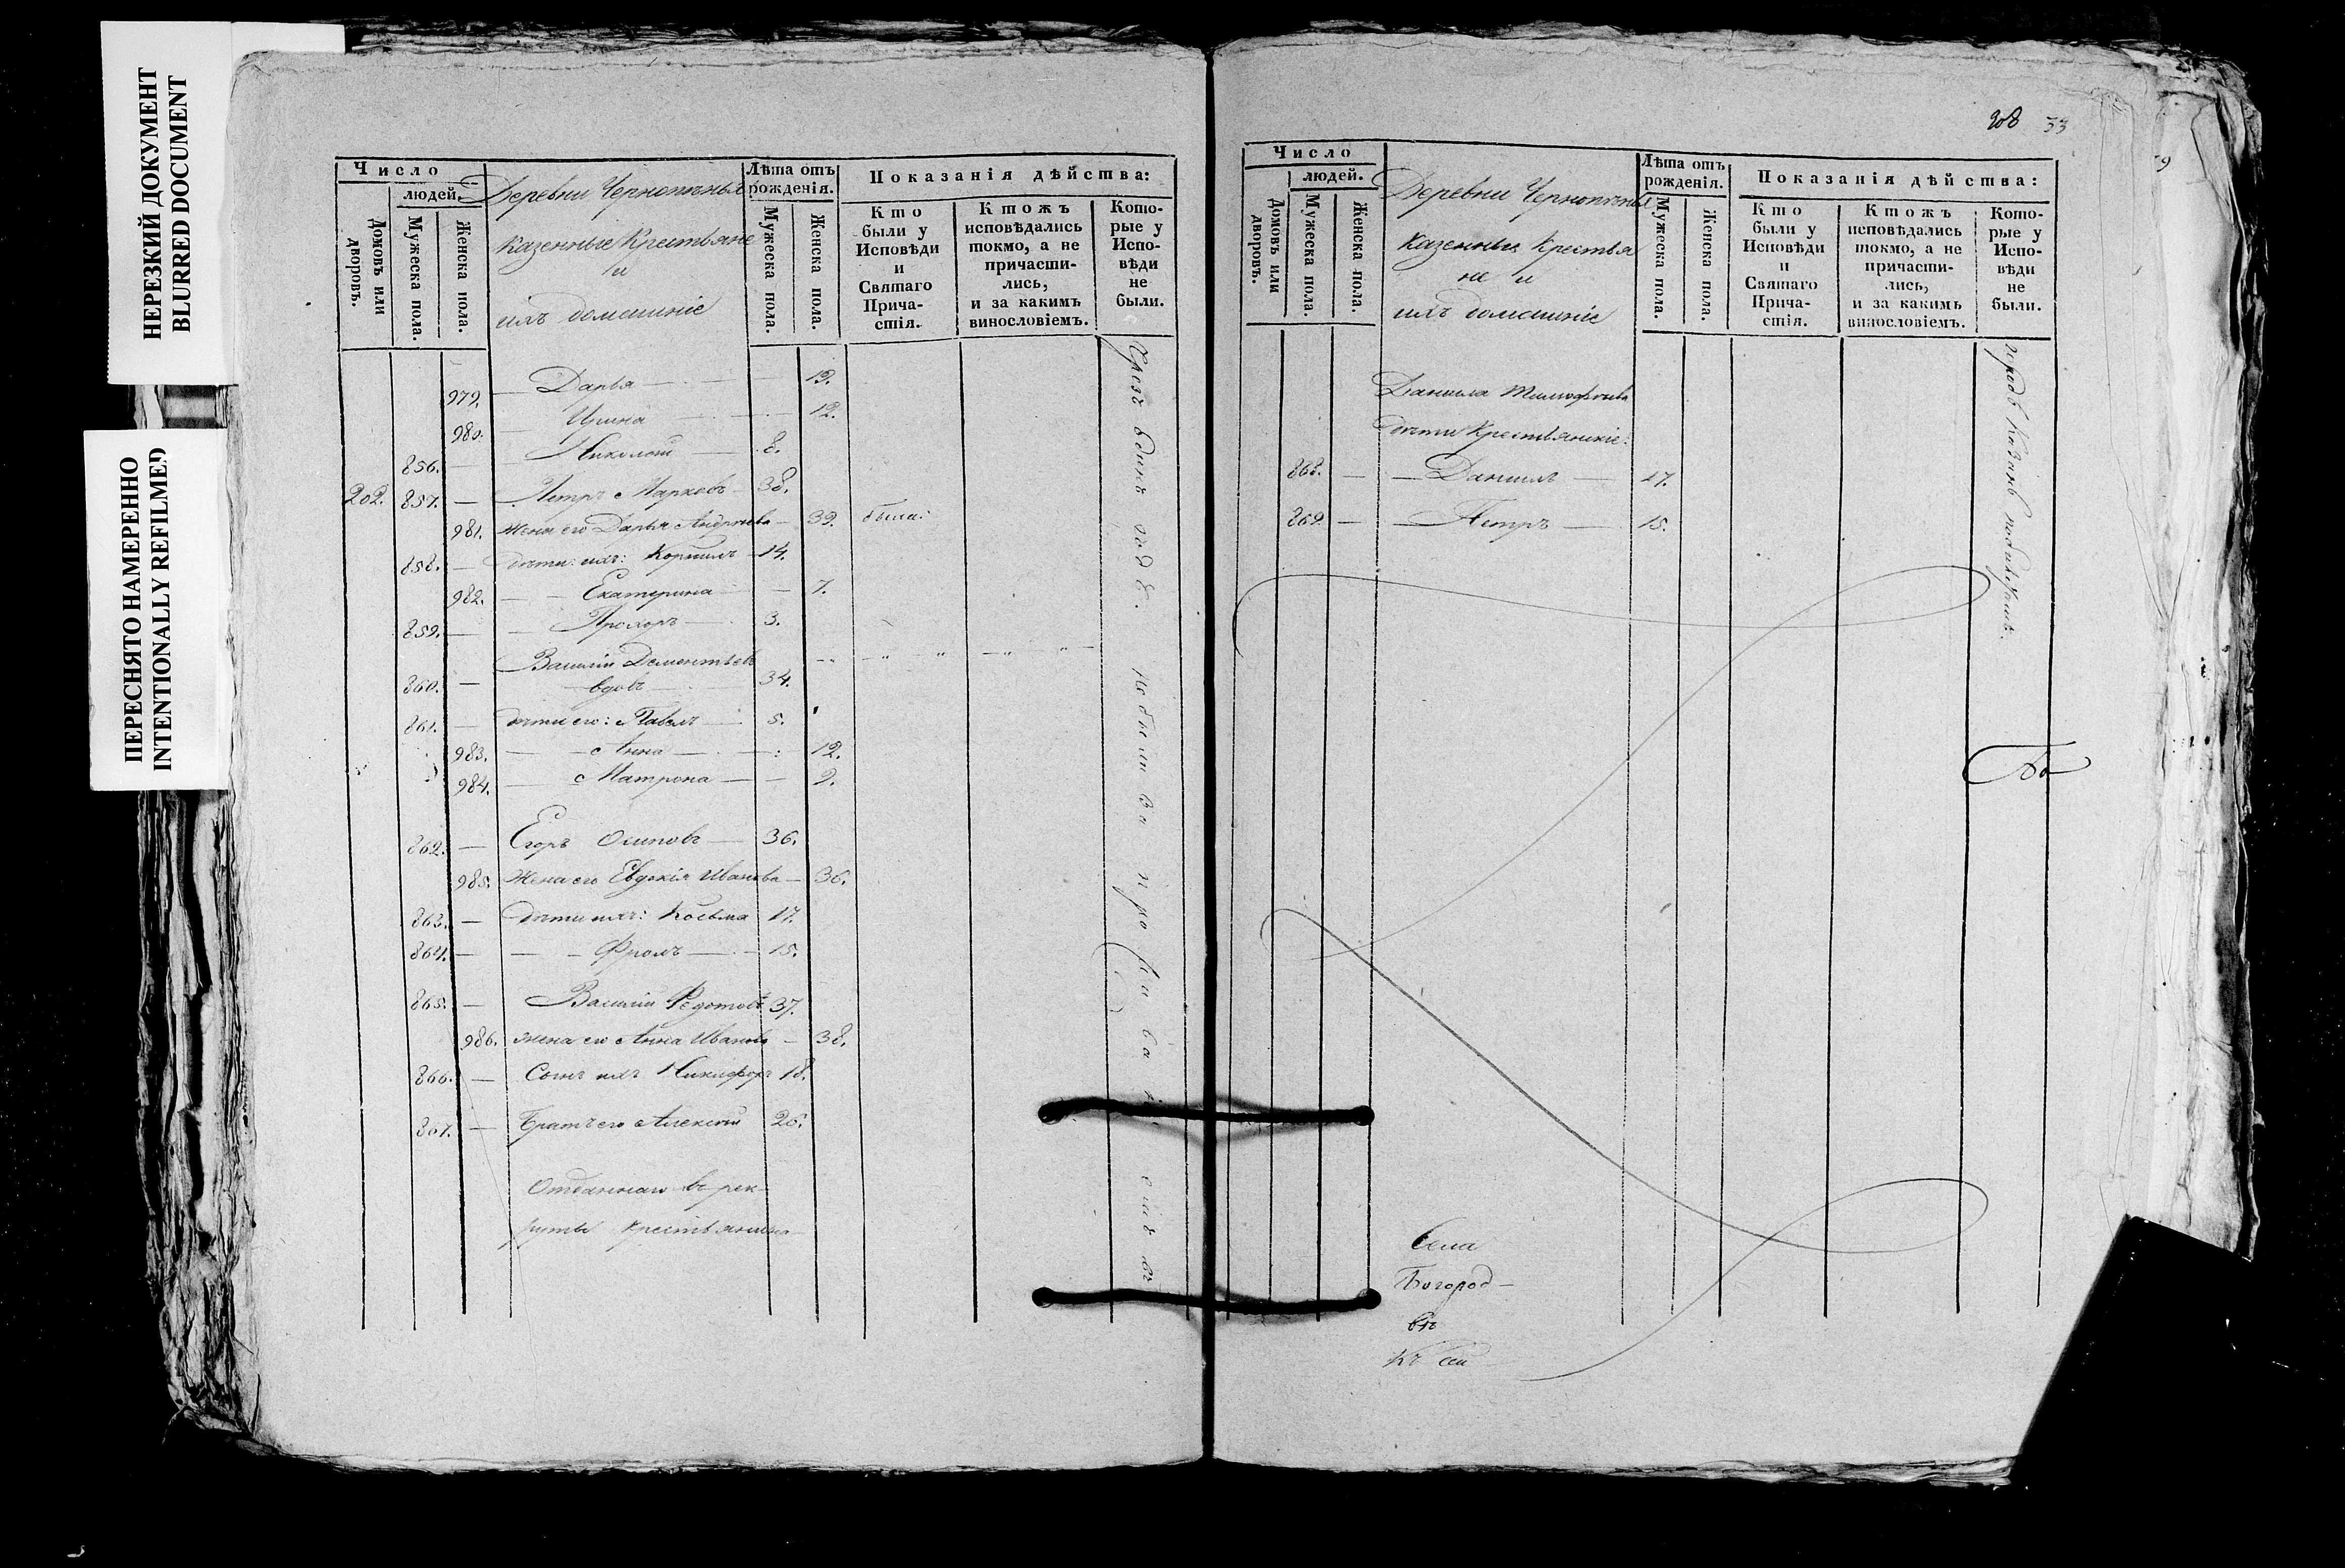 НЕРЕЗКИЙ ДОКУМЕНТ
BLURRED DOCUMENT
ПЕРЕСНЯТО НАМЕРЕННО
INTENTIONALLY REFILMED
Число
людей.
Домовъ или дворовъ.
Мужеска пола.
Женска пола.
Деревни
казенные Крестьяне
и
ихъ домашніе
Лѣта отъ рожденія.
Мужеска пола.
Женска пола.
Показанія дѣйства:
Кто были у Исповѣди и Святаго Прича-стія.
Ктожъ исповѣдались токмо, а не причасти-лись, и за какимъ винословіемъ.
Кото-рые у Испо-вѣди не были.
979. Дарья 19.
980. Ирина 12.
856. — Николай 8.
202. 857. — Петръ Марковъ 38.
981. жена его Дарья Андреева 39. была:
858. — дѣти ихъ: Корнилъ 14.
982. Екатерина 7.
859. — Прохоръ 3.
Василій Дементьевъ
860. — вдовъ 34.
861. — дѣти его: Павелъ 5.
983. Анна 12.
984. Матрона 9.
862. — Егоръ Осиповъ 36.
985. Жена его Евдокія Иванова 36.
863. — дѣти ихъ: Косьма 17.
864. — Фролъ 15.
865. — Василій Федотовъ 37.
986. жена его Анна Иванова 38.
866. — Сынъ ихъ Никифоръ 18.
867. — Братъ его Алексѣй 26.
Отданнаго въ рек-
руты крестьянина
208 33
Число
людей.
Домовъ или дворовъ.
Мужеска пола.
Женска пола.
Деревни
казенные Крестья
не и
ихъ домашніе
Лѣта отъ рожденія.
Мужеска пола.
Женска пола.
Показанія дѣйства:
Кто были у Исповѣди и Святаго Прича-стія.
Ктожъ исповѣдались токмо, а не причасти-лись, и за какимъ винословіемъ.
Кото-рые у Испо-вѣди не были.
Данила Тимофѣева
дѣти Крестьянскіе:
868. — Данилъ 17.
869. — Петръ 15.
Села
Богород-
Къ сей